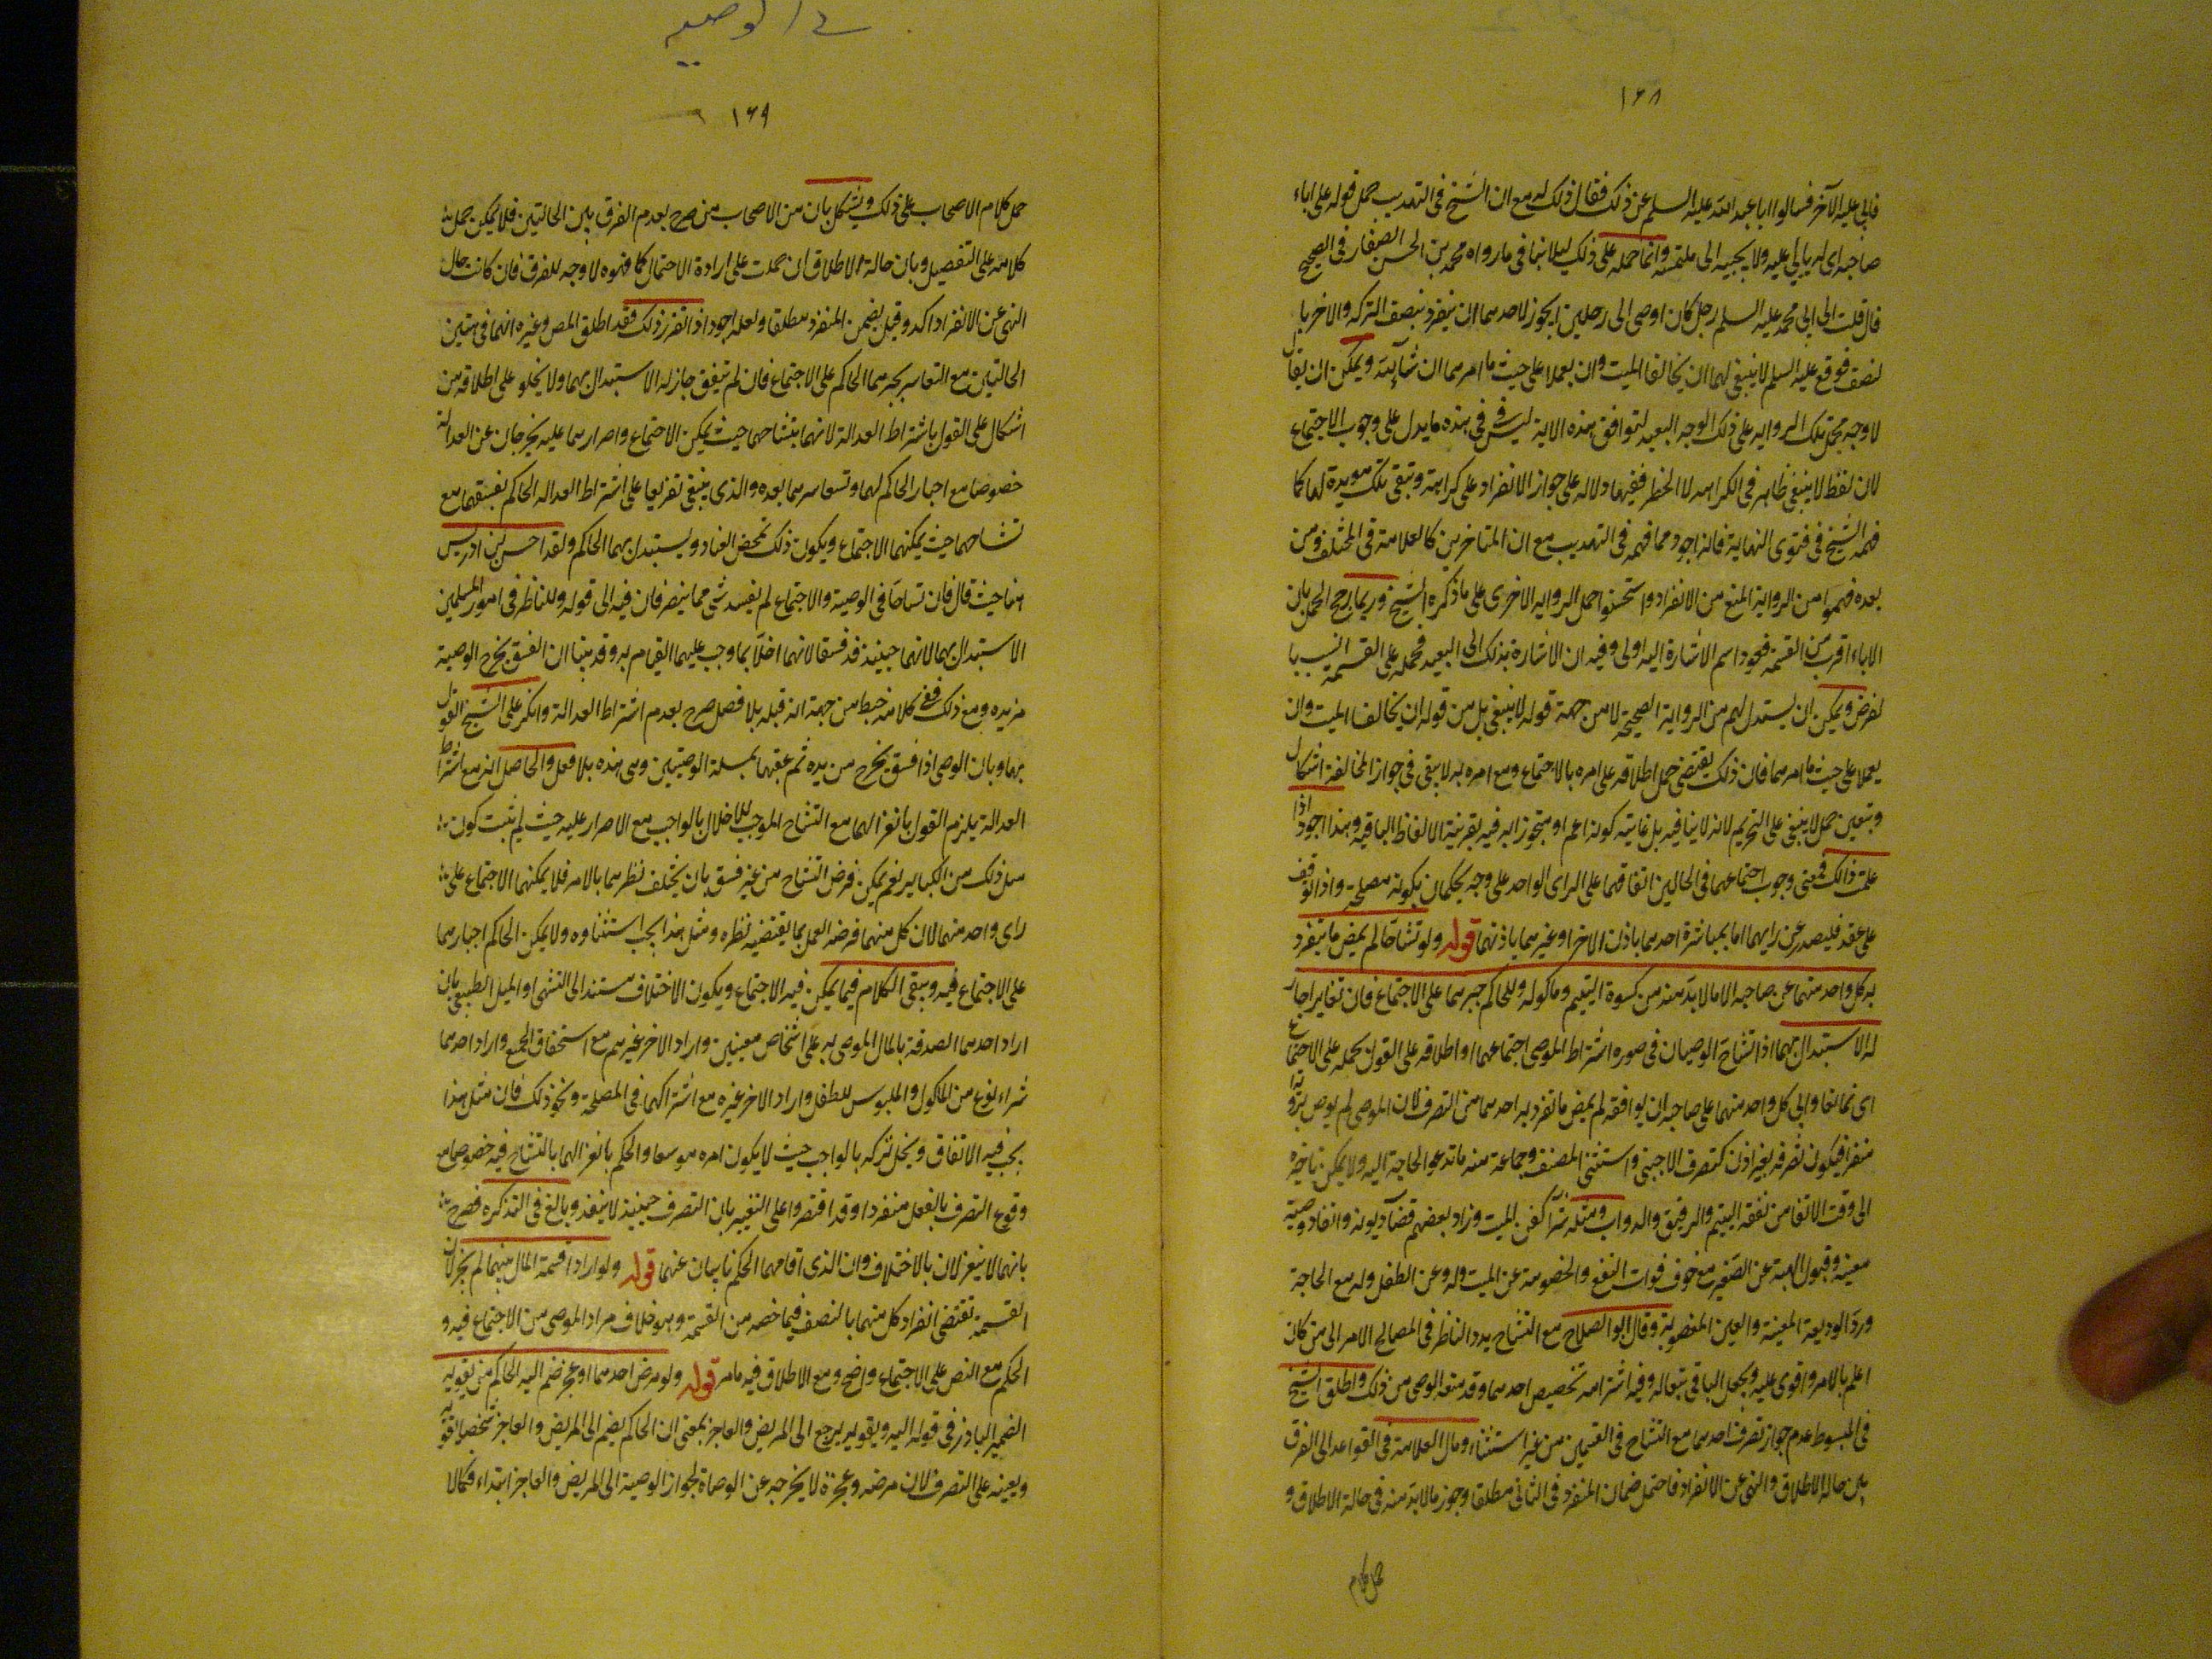 ١٦٨
فابى عليه الآخر فسالوا ابا عبد الله عليه السلم عن ذلك فقال ذلك له مع ان الشيخ في التهذيب حمل قوله على اباء
صاحبه اى له ان يابى عليه ولا يجيبه الى ملتمسه وانما حمله على ذلك ليلا ينافى ما رواه محمد بن الحسن الصفار فى الصحيح
قال قلت الى ابى محمد عليه السلم رجل كان اوصى الى رجلين ايجوز لاحدهما ان ينفرد بنصف التركه والاخر با
لنصف فوقع عليه السلم لا ينبغى لهما ان يخالفا الميت وان يعملا على حيث ما امرهما ان شاء الله ويمكن ان يقال
لا وجه لحمل تلك الروايه على ذلك الوجه البعيد لتوافق هذه الاية ليس فى هذه ما يدل على وجوب الاجتماع
لان لفظ لا ينبغى ظاهر فى الكراهه لا الحظر ففيها دلاله على جواز الانفراد على كراهة وتبقى تلك مويدة لها كما
فهمه الشيخ فى فتوى النهاية فانه اجود مما فهمه فى التهذيب مع ان المتاخرين كالعلامة فى المختلف ومن
بعده فهموا من الرواية المنع من الانفراد واستحسنوا حمل الروايه الاخرى على ما ذكره الشيخ وربما رجح الحمل بان
الاباء اقرب من القسمة فعود اسم الاشارة اليه اولى وفيه ان الاشارة بذلك الى البعيد فحمله على القسمة انسب با
لغرض ويمكن ان يستدل لهم من الرواية الصحيحة لا من جهة قوله لا ينبغى بل من قوله ان يخالفا الميت وان
يعملا على حيث ما امرهما فان ذلك يقتضى حمل اطلاقه على امره بالاجتماع ومع امره به لا يبقى فى جواز المخالفة اشكال
ويتعين حمل لا ينبغى على التحريم لانه لا ينافيه بل غايته كونه اعم او متجوز به فيه بقرينة الالفاظ الباقيه وهذا اجود اذا
علمت ذلك فمعنى وجوب اجتماعهما فى الحالين اتفاقهما على الراى الواحد على وجه يحكمان بكونه مصلحة واذا توقف
على عقد فليصدر عن رايهما اما بمباشرة احدهما باذن الاخر او غيرهما باذنهما قوله ولو تشاحا لم يمض ما ينفرد
به كل واحد منهما عن صاحبه الا ما لا بد منه من كسوة اليتيم وماكوله وللحاكم جبرهما على الاجتماع فان تعاسرا جاز
له الاستبدال بهما اذا تشاح الوصيان فى صوره اشتراط الموصى اجتماعهما او اطلاقه على القول بحمله على الاجتماع
اى تمانعا وابى كل واحد منهما على صاحبه ان يوافقه لم يمض ما انفرد به احدهما من التصرف لان الموصى لم يرض برايه
منفردا فيكون تصرفه بغير اذن كتصرف الاجنبى واستثنى المصنف وجماعة منه ما تدعو الحاجة اليه ولا يمكن تاخيره
الى وقت الاتفاق من نفقه اليتيم والرقيق والدواب ومثله شرا كفن الميت وزاد بعضهم قضا ديونه وانفاذ وصية
معينه وقبول الهبة عن الصغير مع خوف فوات النفع والخصومة عن الميت وله وعن الطفل وله مع الحاجة
ورد الوديعة المعينة والعين المغصوبة وقال ابو الصلاح مع التشاح يرد الناظر فى المصالح الامر الى من كان
اعلم بالامر واقوى عليه ويجعل الباقى تبعا له وفيه انه تخصيص احدهما وقد منعه الموصى من ذلك واطلق الشيخ
فى المبسوط عدم جواز تصرف احدهما مع التشاح فى القسمين من غير استثناء ومال العلامة فى القواعد الى الفرق
بين حالة الاطلاق والنهى عن الانفراد فاحتمل ضمان المنفرد فى الثانى مطلقا وجوز ما لا بد منه فى حالة الاطلاق و
حمل كلام
فى الوصيه
١٦٩
حمل كلام الاصحاب على ذلك ويشكل بان من الاصحاب من صرح بعدم الفرق بين الحالتين فلا يمكن حمل
كلامه على التفصيل وبان حالة الاطلاق ان حملت على ارادة الاجتماع كما فهموه لا وجه للفرق فان كانت حال
النهى عن الانفراد اكد وقيل يضمن المنفرد مطلقا ولعله اجود اذا تقرر ذلك فقد اطلق المص وغيره انهما فى هتين
الحالتين مع التعاسر يجبرهما الحاكم على الاجتماع فان لم يتفق جاز له الاستبدال بهما ولا يخلو على اطلاقه من
اشكال على القول باشتراط العدالة لانهما بتشاحهما حيث يمكن الاجتماع واصرارهما عليه يخرجان عن العدالة
خصوصا مع اجبار الحاكم لهما وتعاسرهما بعده والذى ينبغى تفريعا على اشتراط العداله الحاكم بفسقهما مع
تشاحهما حيث يمكنهما الاجتماع ويكون ذلك لمحض العناد ويستبدل بهما الحاكم ولقد احسن ابن ادريس
هنا حيث قال فان تشاحا فى الوصية والاجتماع لم ينفذ شى مما يتصرفان فيه الى قوله وللناظر فى امور المسلمين
الاستبدال بهما لانهما حينيذ قد فسقا لانهما اخلا بما وجب عليهما القيام به وقد بينا ان الفسق يخرج الوصية
من يده ومع ذلك ففى كلامه خبط من جهة انه قبله بلا فصل صرح بعدم اشتراط العدالة وانكر على الشيخ القول
بها وبان الوصى اذا فسق يخرج من يده ثم عقبها بمسلة الوصيين وهى هذه بلا فصل والحاصل انه مع اشتراط
العدالة يلزم القول بانعزالهما مع التشاح الموجب للاخلال بالواجب مع الاصرار عليه حيث لم يثبت كون
مثل ذلك من الكباير نعم يمكن فرض التشاح من غير فسق بان يختلف نظرهما بالامر فلا يمكنهما الاجتماع على
راى واحد منهما لان كل منهما فرضه العمل بما يقتضيه نظره ومثل هذا يجب استثناوه ولا يمكن الحاكم اجبارهما
على الاجتماع فيه ويبقى الكلام فيما يمكن فيه الاجتماع ويكون الاختلاف مستندا الى التشهى والميل الطبيعى بان
اراد احدهما الصدقة بالمال الموصى به على اشخاص معينين واراد الاخر غيرهم مع استحقاق الجميع واراد احدهما
شراء نوع من الماكول والملبوس للطفل واراد الاخر غيره مع اشتراكهما فى المصلحة ونحو ذلك فان مثل هذا
يجب فيه الاتفاق ويخل تركه بالواجب حيث لا يكون امره موسعا والحكم بانعزالهما بالتشاح فيه خصوصا مع
وقوع التصرف بالفعل منفردا وقد اقتصروا على التعبير بان التصرف حينيذ لا ينفذ وبالغ فى التذكره فصرح
بانهما لا ينعزلان بالاختلاف وان الذى اقامهما الحكم نايبان عنهما قوله ولو ارادا قسمة المال بينهما لم يجز لان
القسمة تقتضى انفراد كل منهما بالنصف فيما خصه من القسمة وهو خلاف مراد الموصى من الاجتماع فيه و
الحكم مع النص على الاجتماع واضح ومع الاطلاق فيه ما مر قوله ولو مرض احدهما او عجز ضم اليه الحاكم من يقويه
الضمير البارز فى قوله اليه ويقويه يرجع الى المريض والعاجز بمعنى ان الحاكم يضم الى المريض والعاجز شخصا يقويه
ويعينه على التصرف لان مرضه وعجزه لا يخرجه عن الوصاة لجواز الوصية الى المريض والعاجز ابتداء فكذا لا